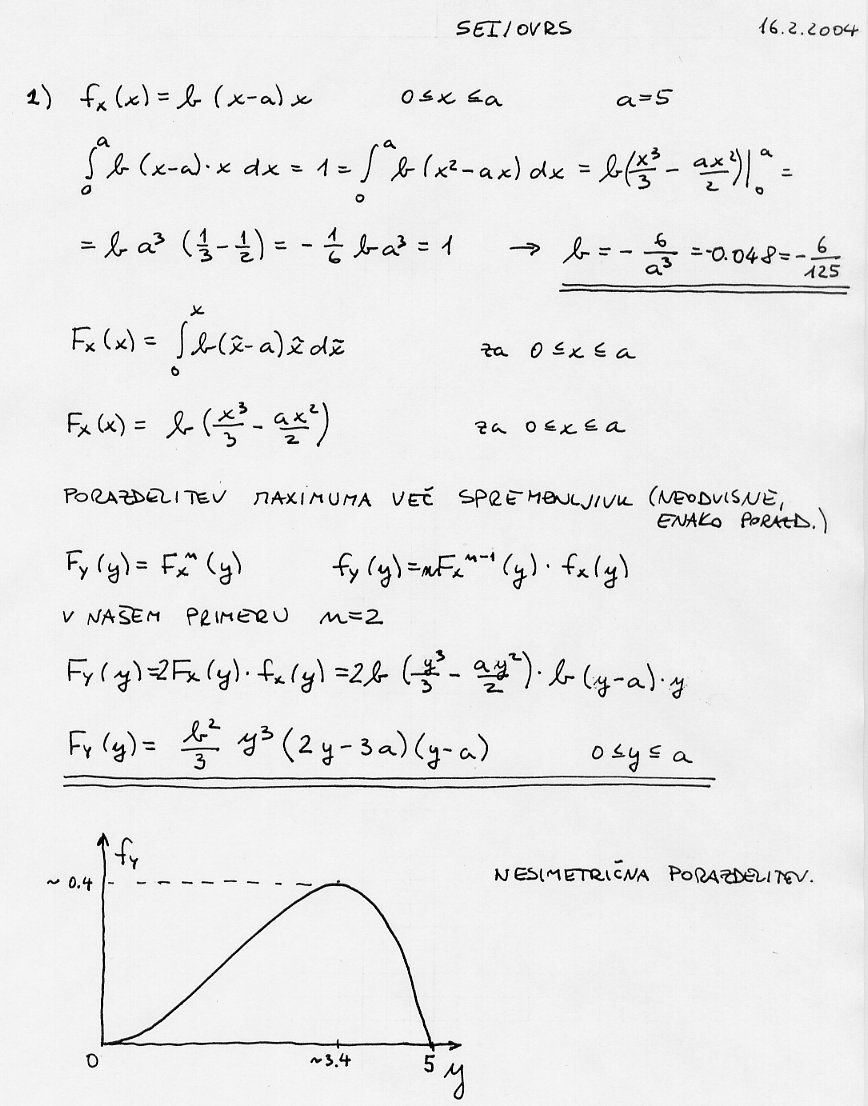 SEI/OVRS 16.2.2004
1) fx(x) = b (x-a) x 0≤x≤a a=5
∫₀ᵃ b (x-a)·x dx = 1 = ∫₀ᵃ b (x²-ax) dx = b(x³/3 - ax²/2)|₀ᵃ =
= b a³ (1/3 - 1/2) = - 1/6 b a³ = 1 → b = - 6/a³ = -0.048 = - 6/125
Fx(x) = ∫₀ˣ b(x̃-a)x̃ dx̃ za 0≤x≤a
Fx(x) = b (x³/3 - ax²/2) za 0≤x≤a
PORAZDELITEV MAXIMUMA VEČ SPREMENLJIVK (NEODVISNE,
ENAKO PORAZD.)
F_Y(y) = Fxⁿ(y) f_Y(y) = nFxⁿ⁻¹(y) · fx(y)
V NAŠEM PRIMERU n=2
F_Y(y) = 2Fx(y)·fx(y) = 2b (y³/3 - ay²/2)· b (y-a)·y
F_Y(y) = b²/3 y³ (2y-3a)(y-a) 0≤y≤a
f_Y
~ 0.4
NESIMETRIČNA PORAZDELITEV.
0 ~3.4 5 y